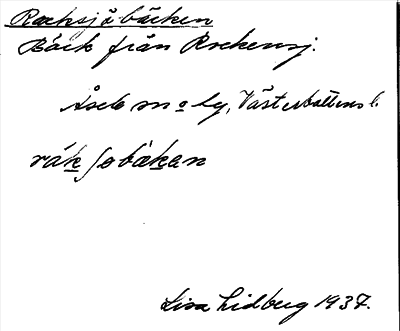 Rocksjöbäcken
Bäck från Rockensj.
Åsele sn o ly, Västerbottens l.
råk ʃobäkan
Lisa Lidberg 1937.